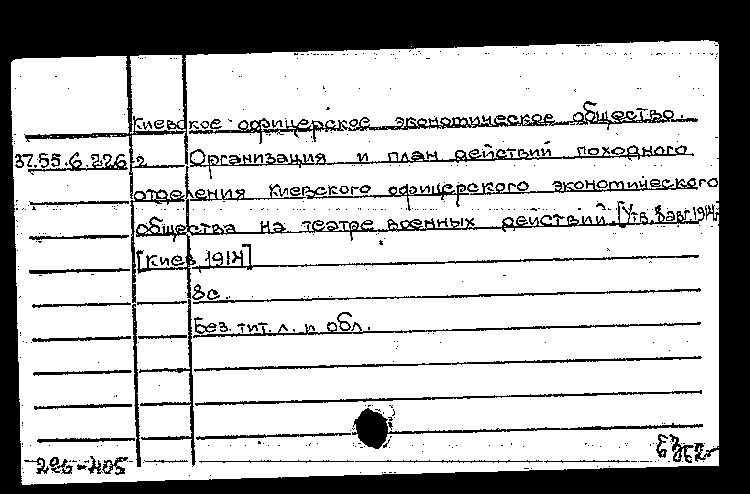 Киевское офицерское экономическое общество.
37.55.6.226 2 Организация и план действий походного
отделения Киевского офицерского экономического
общества на театре военных действий. [Утв. 8 авг. 1914]
[Киев, 1914]
8о.
Без тит. л. и обл.
226-405